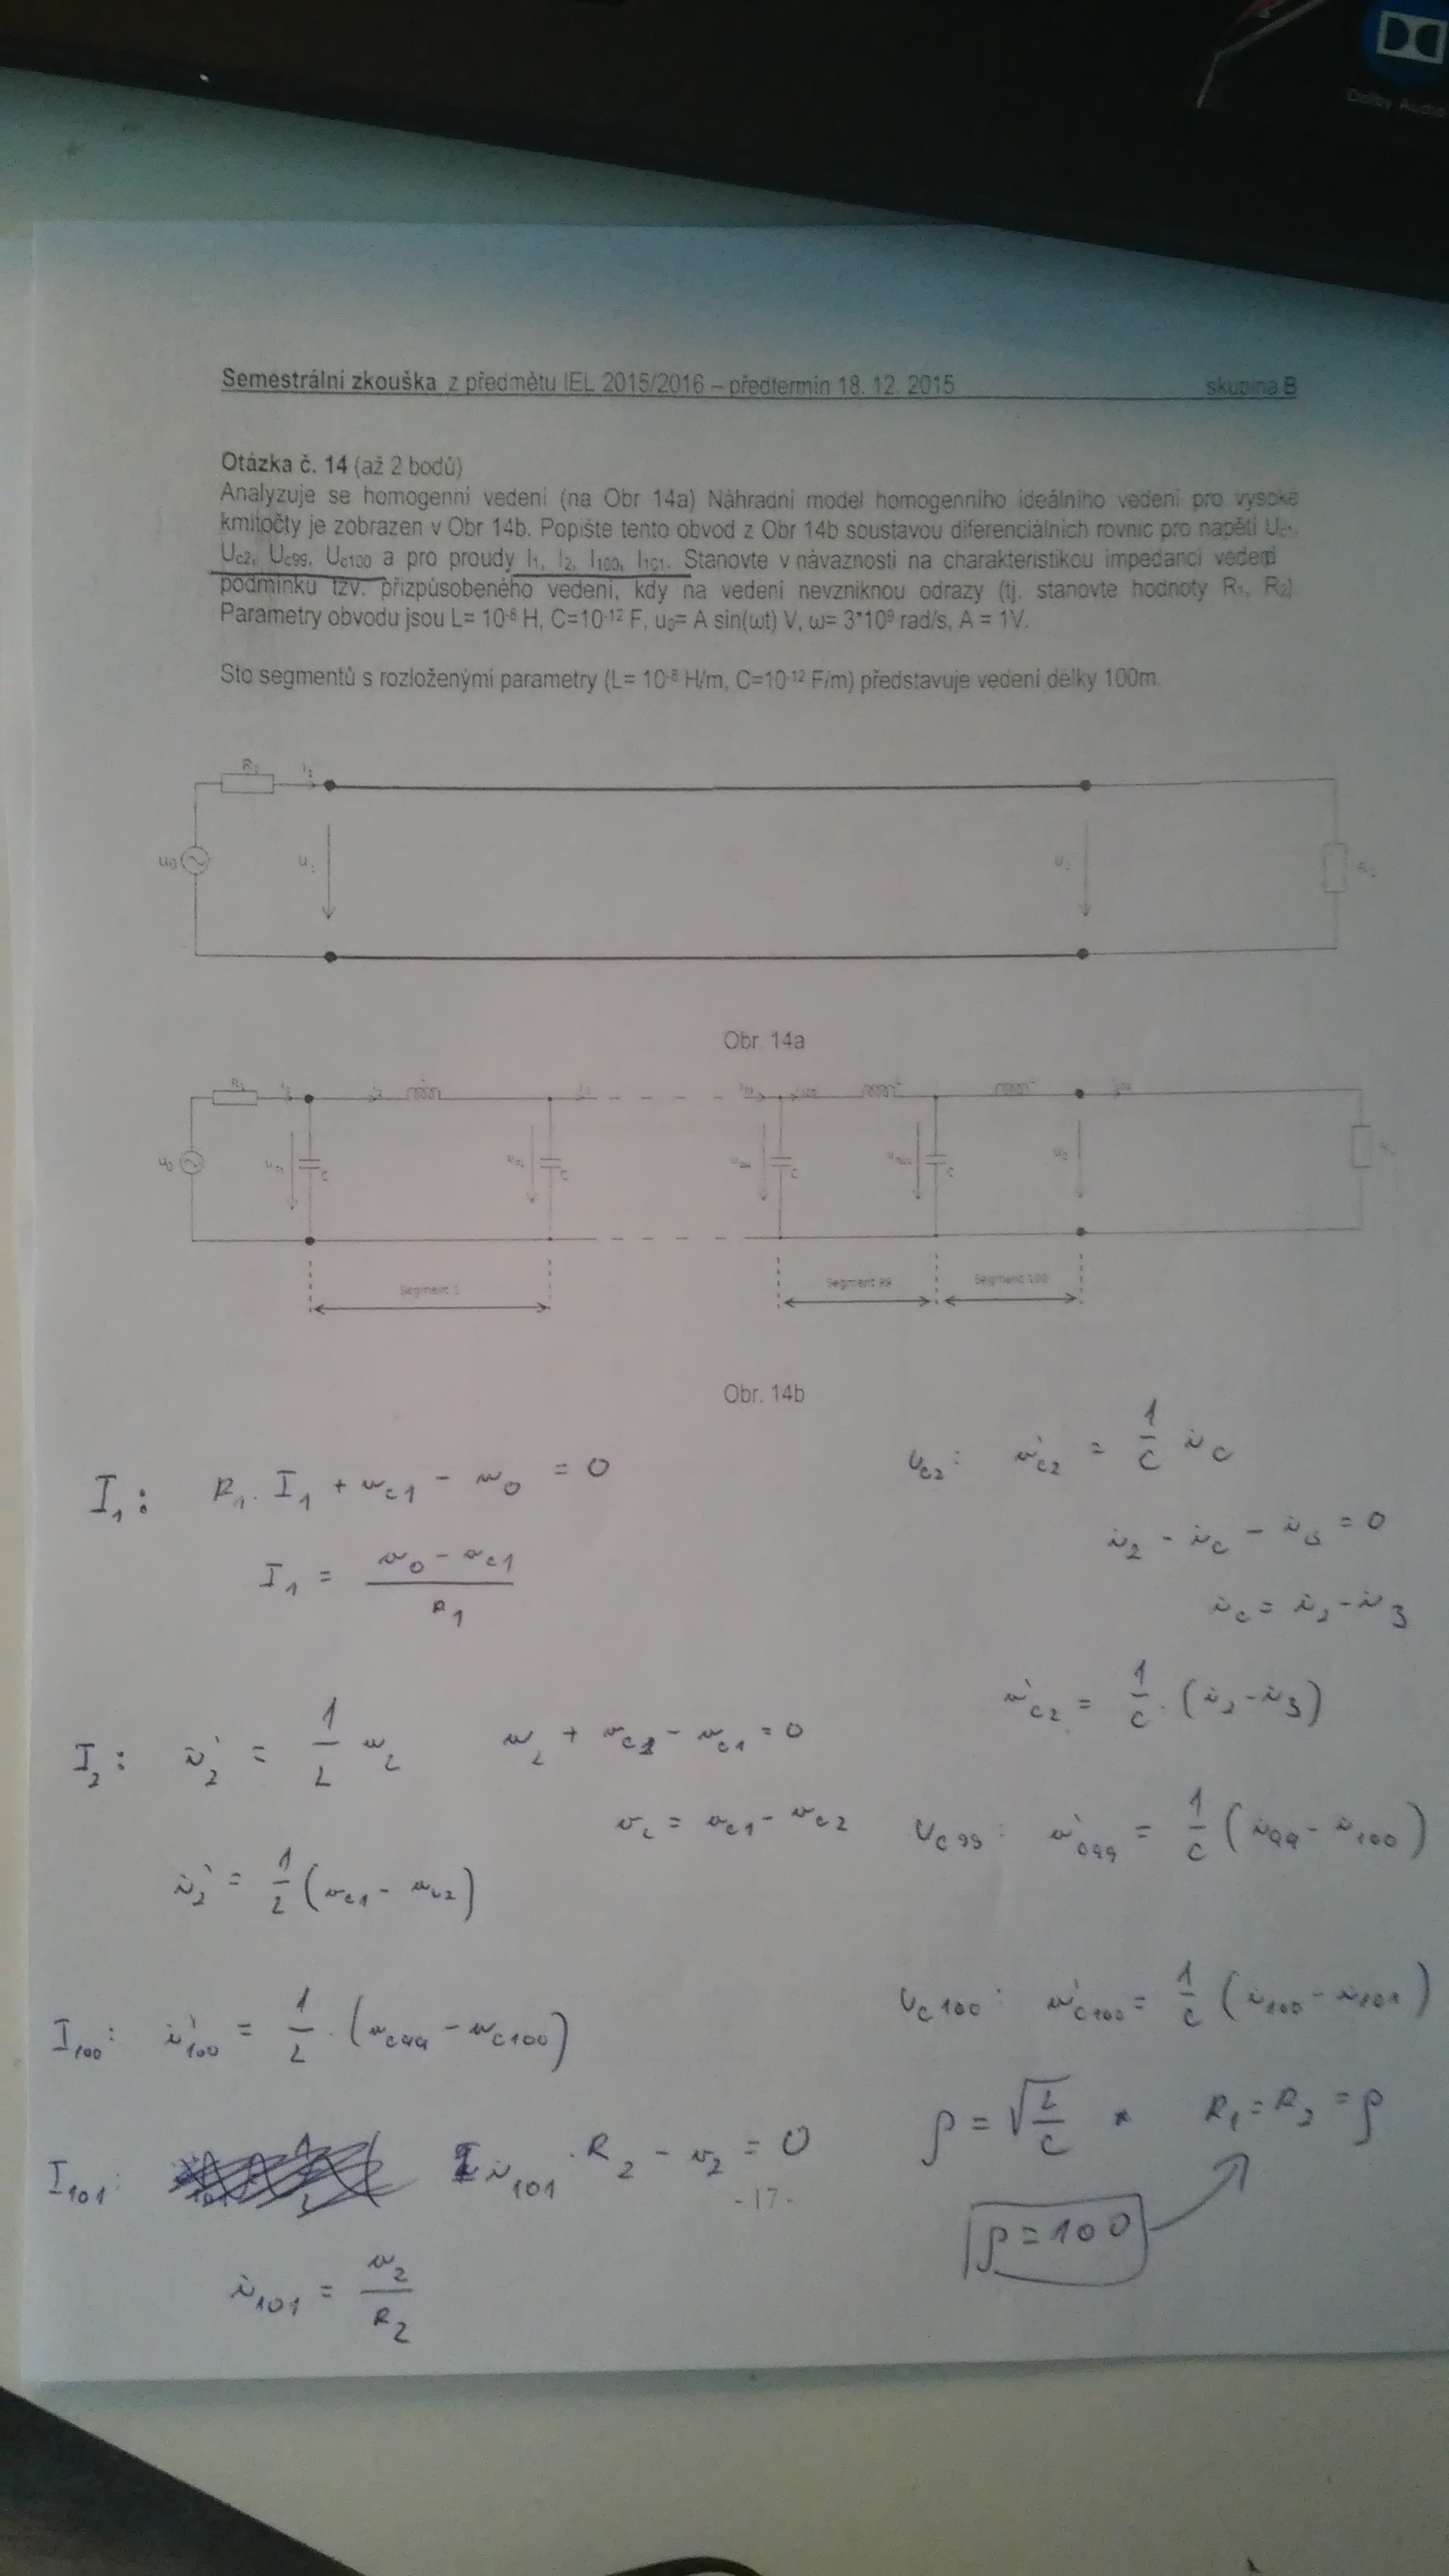 Dolby Audio
Semestrální zkouška z předmětu IEL 2015/2016 – předtermín 18. 12. 2015 skupina B
Otázka č. 14 (až 2 bodů)
Analyzuje se homogenní vedení (na Obr 14a) Náhradní model homogenního ideálního vedení pro vysoké
kmitočty je zobrazen v Obr 14b. Popište tento obvod z Obr 14b soustavou diferenciálních rovnic pro napětí Uc1,
Uc2, Uc99, Uc100 a pro proudy I1, I2, I100, I101. Stanovte v návaznosti na charakteristikou impedanci vedení
podmínku tzv. přizpůsobeného vedení, kdy na vedení nevzniknou odrazy (tj. stanovte hodnoty R1, R2).
Parametry obvodu jsou L= 10⁻⁸ H, C=10⁻¹² F, u0= A sin(ωt) V, ω= 3*10⁹ rad/s, A = 1V.
Sto segmentů s rozloženými parametry (L= 10⁻⁸ H/m, C=10⁻¹² F/m) představuje vedení délky 100m.
u0
Obr. 14a
u0 C C C C u2
Segment 1 Segment 99 Segment 100
Obr. 14b
I1: R1 . I1 + uc1 - u0 = 0
I1 = (u0 - uc1) / R1
I2: i2' = 1/L uL uL + uc2 - uc1 = 0
uL = uc1 - uc2
i2' = 1/L (uc1 - uc2)
I100: i'100 = 1/L . (uc99 - uc100)
I101: i101 . R2 - u2 = 0
i101 = u2 / R2
Uc2: u'c2 = 1/C ic
i2 - ic - i3 = 0
ic = i2 - i3
u'c2 = 1/C . (i2 - i3)
Uc99: u'c99 = 1/C (i99 - i100)
Uc100: u'c100 = 1/C (i100 - i101)
ρ = √(L/C) R1 = R2 = ρ
ρ = 100
- 17 -